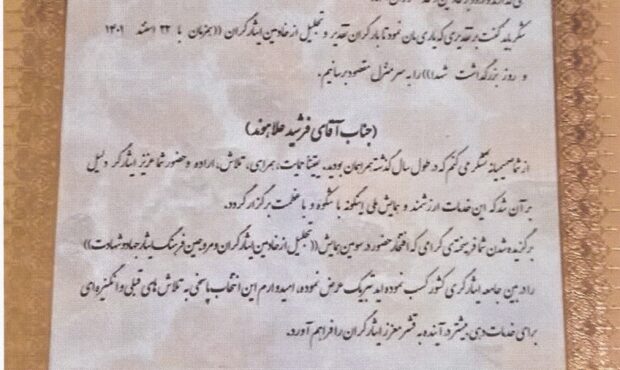 شکر باید گفت بر تقدیری که یاری مان نمود تا بار گران تقدیر و تجلیل از خادمین ایثارگران ((همزمان با ۲۲ اسفند ۱۴۰۱
و روز بزرگداشت شهدا)) را به سر منزل مقصود برسانیم.
(جناب آقای فرشید علاهوند)
از شما صمیمانه تشکر می کنم که در طول سال گذشته همراهمان بودید. یقینا حمایت، همراهی، تلاش، اراده و حضور شما عزیز ایثارگر دلیل
بر آن شد که این خدمات ارزشمند و همایش ملی اینگونه با شکوه و با عظمت برگزار گردد.
برگزیده شدن شما فرهیخته ی گرامی که افتخار حضور در سومین همایش ((تجلیل از خادمین ایثارگران و مروجین فرهنگ ایثار جهاد و شهادت))
را در بین جامعه ایثارگری کشور کسب نموده اید تبریک عرض نموده، امیدوارم این انتخاب پاسخی به تلاش های قبلی و انگیزه ای
برای خدمات دهی بیشتر در آینده به قشر معزز ایثارگران را فراهم آورد.